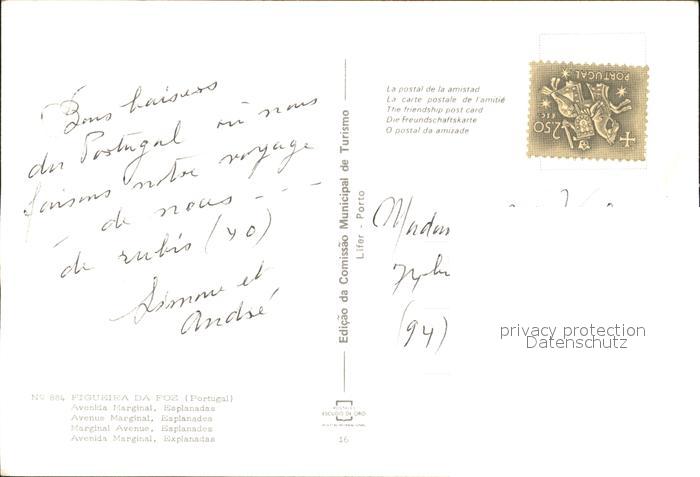 Bons baisers
du Portugal où nous
faisons notre voyage
de noces - - -
de rubis (40)
Simone et
André
Nº 884 FIGUEIRA DA FOZ (Portugal)
Avenida Marginal, Esplanadas
Avenue Marginal, Esplanades
Marginal Avenue, Esplanades
Avenida Marginal, Explanadas
Edição da Comissão Municipal de Turismo
Lifer - Porto
POSTALES
ESCUDO DE ORO
16
La postal de la amistad
La carte postale de l'amitié
The friendship post card
Die Freundschaftskarte
O postal da amizade
PORTUGAL
2$50
Madam
(94)
privacy protection
Datenschutz